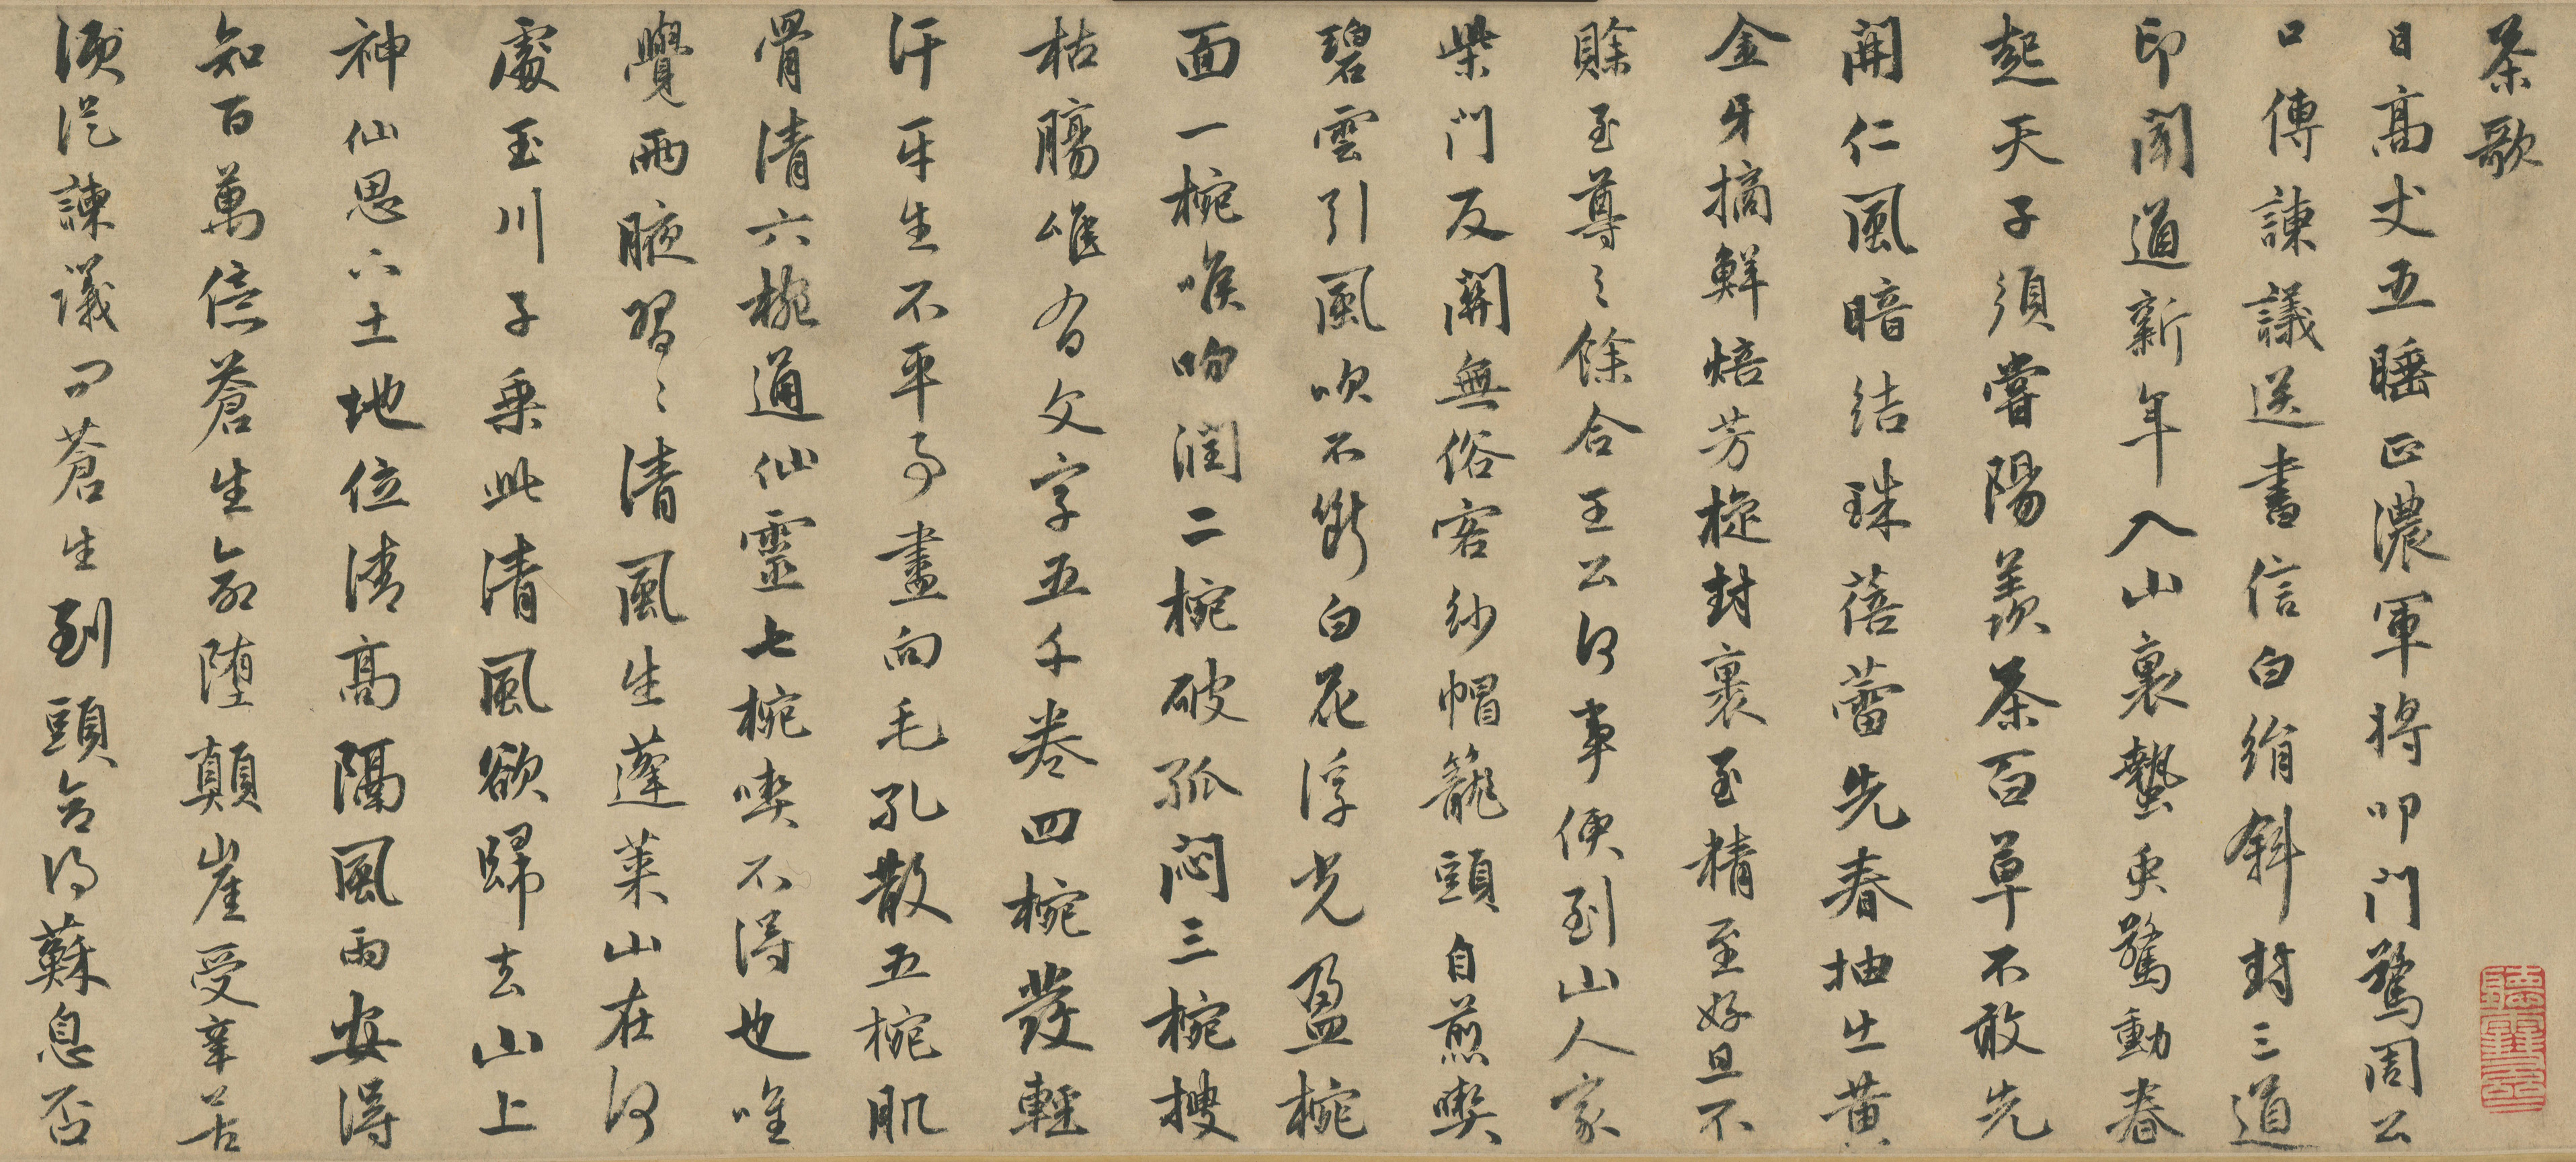 茶歌
日高丈五睡正濃軍將叩門驚周公
口傳諫議送書信白絹斜封三道
印聞道新年入山裏蟄虫驚動春
起天子須嘗陽羨茶百草不敢先
開仁風暗結珠蓓蕾先春抽出黃
金牙摘鮮焙芳旋封裹至精至好且不
賒至尊之餘合王公何事便到山人家
柴門反關無俗客紗帽籠頭自煎喫
碧雲引風吹不斷白花浮光盈椀
面一椀喉吻潤二椀破孤悶三椀搜
枯腸唯有文字五千卷四椀發輕
汗平生不平事盡向毛孔散五椀肌
骨清六椀通仙靈七椀喫不得也唯
覺兩腋習〻清風生蓬萊山在何
處玉川子乘此清風欲歸去山上
神仙思下土地位清高隔風雨安得
知百萬億蒼生命墮顛崖受辛苦
湏從諫議問蒼生到頭合得蘇息否